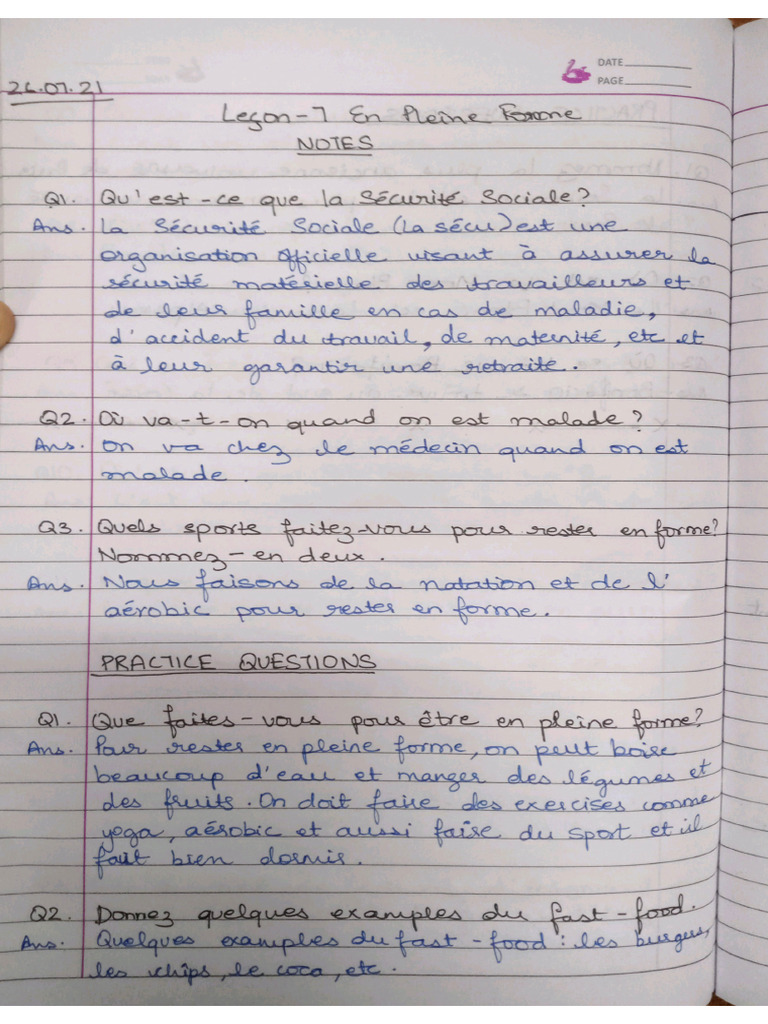 DATE
PAGE
26.07.21
Leçon-7 En Pleine Forme
NOTES
Q1. Qu'est-ce que la Sécurité Sociale?
Ans. La Sécurité Sociale (La sécu) est une
organisation officielle visant à assurer la
sécurité matérielle des travailleurs et
de leur famille en cas de maladie,
d'accident du travail, de maternité, etc et
à leur garantir une retraite.
Q2. Où va-t-on quand on est malade?
Ans. On va chez le médecin quand on est
malade.
Q3. Quels sports faitez-vous pour rester en forme?
Nommez-en deux.
Ans. Nous faisons de la natation et de l'
aérobic pour rester en forme.
PRACTICE QUESTIONS
Q1. Que faites-vous pour être en pleine forme?
Ans. Pour rester en pleine forme, on peut boire
beaucoup d'eau et manger des légumes et
des fruits. On doit faire des exercises comme
yoga, aérobic et aussi faire du sport et il
faut bien dormir.
Q2. Donnez quelques examples du fast-food.
Ans. Quelques examples du fast-food: les burgers,
les chips, le coca, etc.